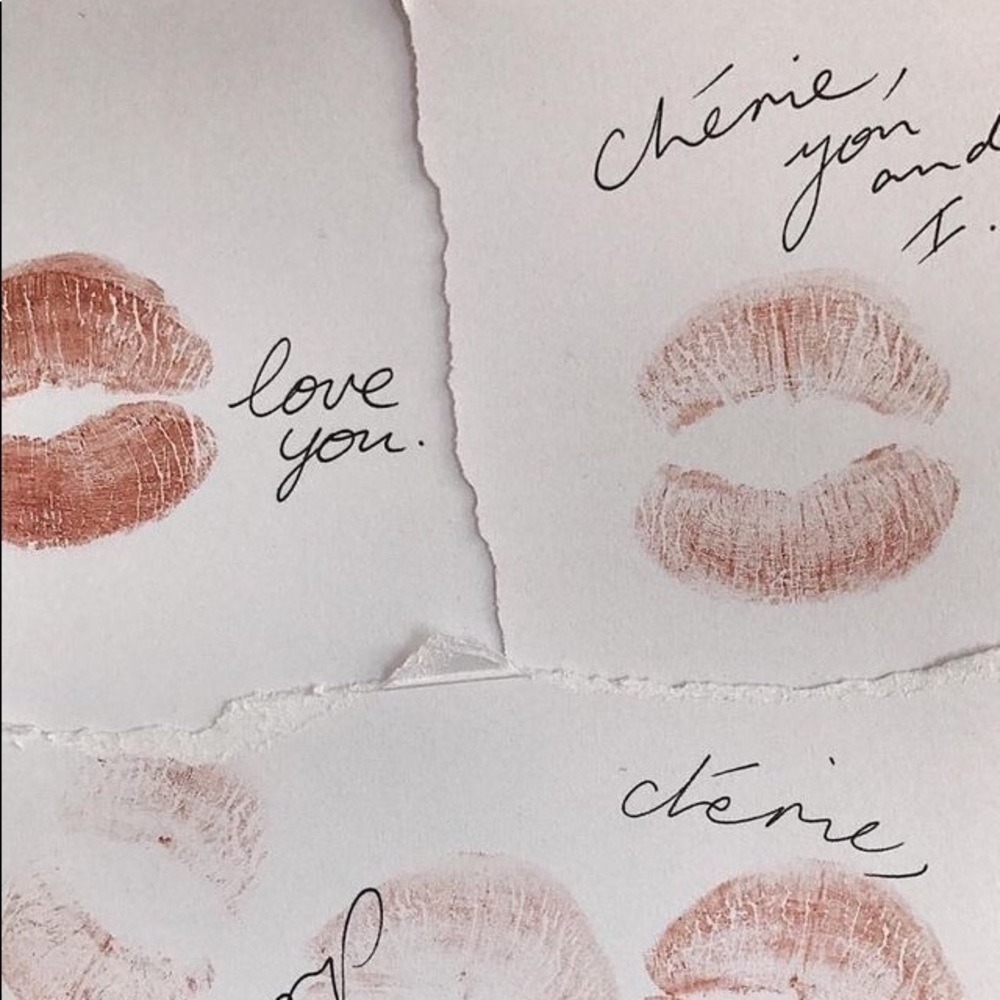 chérie,
you
and
I.
love
you.
chérie,